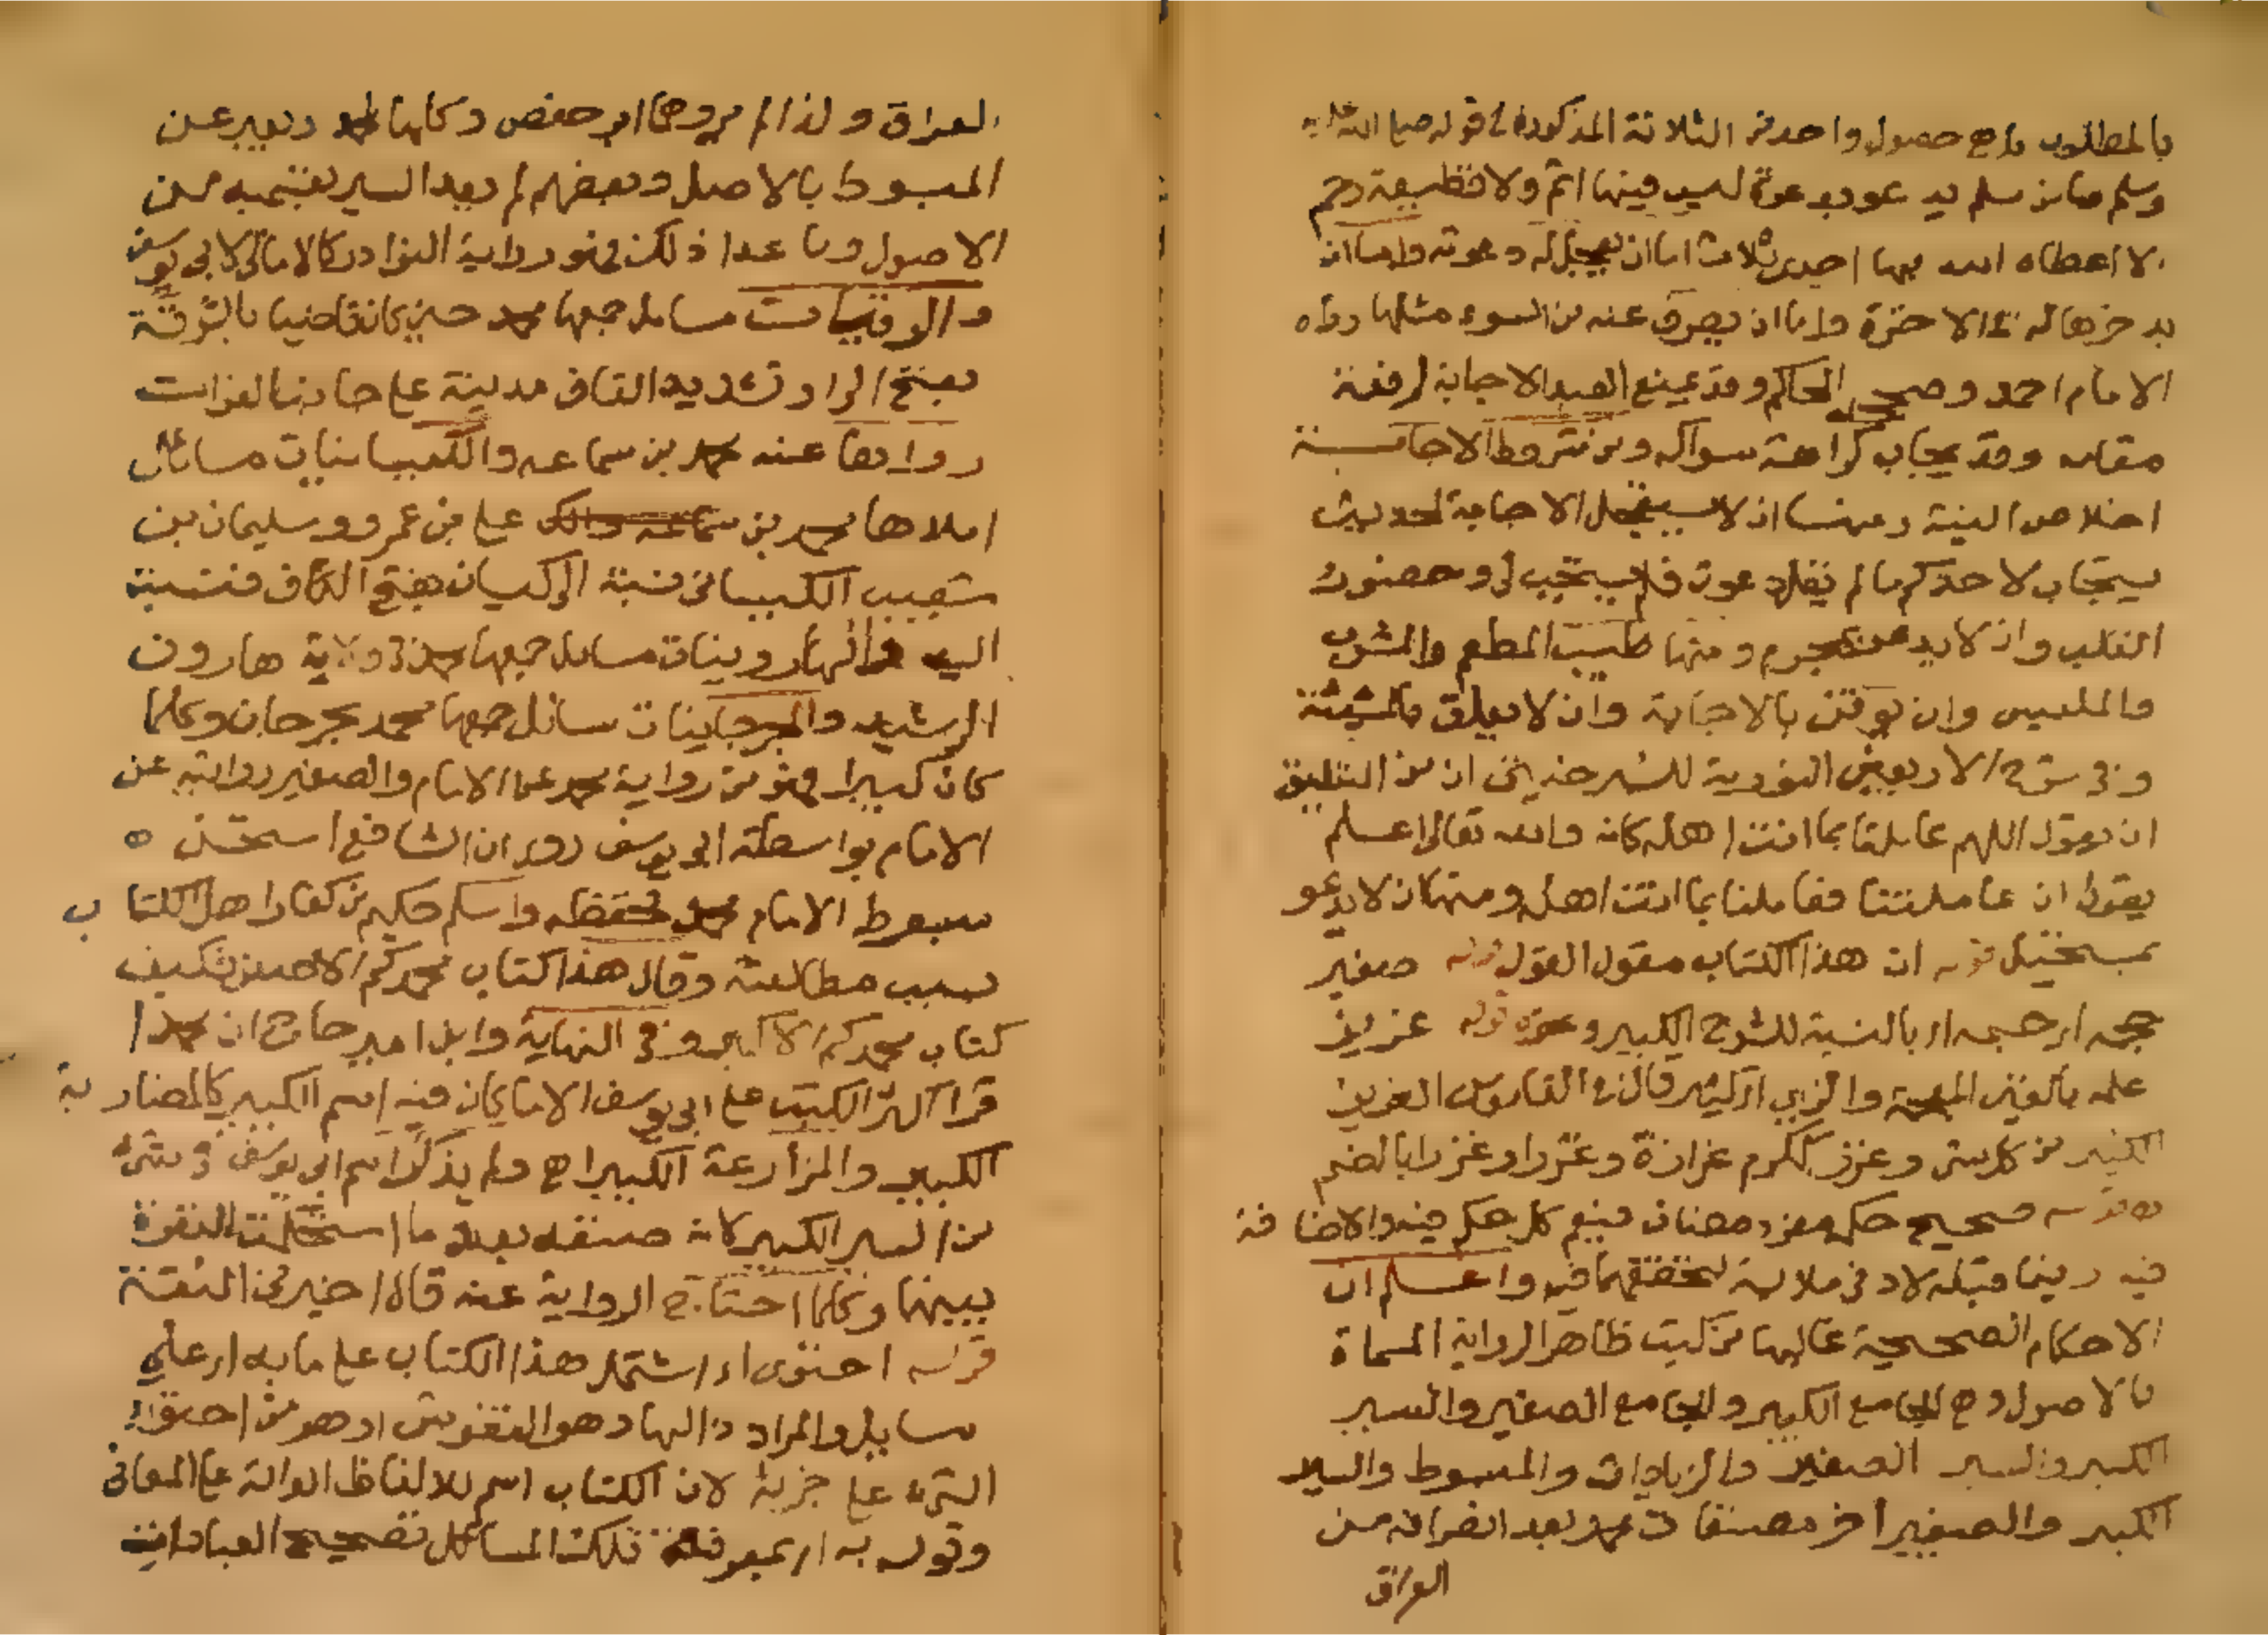 بالمطلوب ما مع حصول واحد من الثلاثة المذكورة في قوله صلى الله عليه
وسلم ما من مسلم يدعو بدعوة ليس فيها اثم ولا قطيعة رحم
الا اعطاه الله بها احدى ثلاث اما ان يعجل له دعوته واما ان
يدخرها له في الاخرة واما ان يصرف عنه من السوء مثلها رواه
الامام احمد وصححه الحاكم وقد يمنع العبد الاجابة لرفعة
مقامه وقد يجاب كراهة سواله ومن شروط الاجابة
اخلاص النية ومنها ان لا يستعجل الاجابة لحديث
يستجاب لاحدكم ما لم يقل دعوت فلم يستجب لي وحضور
القلب وان لا يدعو بمحرم ومنها طيب المطعم والمشرب
والملبس وان يوقن بالاجابة وان لا يعلق بالمشيئة
وفي شرح الاربعين النووية للشرخيتي ان من التعليق
ان يقول اللهم عاملنا بما انت اهله كانه والله تعالى اعلم
يقول ان عاملتنا فعاملنا بما انت اهله ومنها ان لا يدعو
بمستحيل قوله ان هذا الكتاب مقول القول قوله صغير
حجمه اي جسمه اي بالنسبة للشروح الكبيرة قوله غزير
علمه بالغين المعجمة والزاي اي كثير قال في القاموس الغزير
الكثير من كل شي وغزر ككرم غزارة وغزرا وغزرا بالضم
قوله صحيح حكمه مفرد مضاف فيعم كل حكم فيه والاضافة
فيه وفيما قبله لادنى ملابسة لتحققهما فيه واعلم ان
الاحكام الصحيحة غالبها من كتب ظاهر الرواية المسماة
بالاصول وهي الجامع الكبير والجامع الصغير والسير
الكبير والسير الصغير والزيادات والمبسوط والسير
الكبير والصغير اخر مصنفات محمد بعد انصرافه من
العراق
العراق ولذا لم يروها ابو حفص وكلها لمحمد ويعبر عن
المبسوط بالاصل وبعضهم لم يعد السير بقسميه من
الاصول وما عدا ذلك فهو رواية النوادر كالامالي لابي يوسف
والرقيات مسايل جمعها محمد حين كان قاضيا بالرقة
بفتح الرا وتشديد القاف مدينة على جانب الفرات
رواها عنه محمد بن سماعه والكيسانيات مسائل
املاها محمد بن سماعه والك على بن عمرو وسليمان بن
شعيب الكيساني نسبة الى كيسان بفتح الكاف فنسبت
اليه والهارونيات مسايل جمعها محمد في ولاية هارون
الرشيد والجرجانيات مسائل جمعها محمد بجرجان وكلما
كان كبيرا فهو من رواية محمد عن الامام والصغير روايته عن
الامام بواسطة ابي يوسف روي ان الشافعي استحسن
مبسوط الامام محمد فحفظه واسلم حكيم من كفار اهل الكتاب
بسبب مطالعته وقال هذا كتاب محمدكم الاصغر فكيف
كتاب محمدكم الاكبر وفي النهاية وابن امير حاج ان محمدا
قرا اكثر الكتب على ابي يوسف الا ما كان فيه اسم الكبير كالمضاربة
الكبير والمزارعة الكبير اه ولم يذكر اسم ابي يوسف في شيء
من السير الكبير لانه صنفه بعد ما استحكمت النفرة
بينهما وكلما احتاج الرواية عنه قال اخبرني الثقة
قوله احتوى اي اشتمل هذا الكتاب على ما به اي على
مسايل والمراد دالها وهو النقوش او هو من احتواء
الشيء على جزئه لان الكتاب اسم للالفاظ الدالة على المعاني
وقوله به اي بمعرفة تلك المسائل تصحيح العبادات